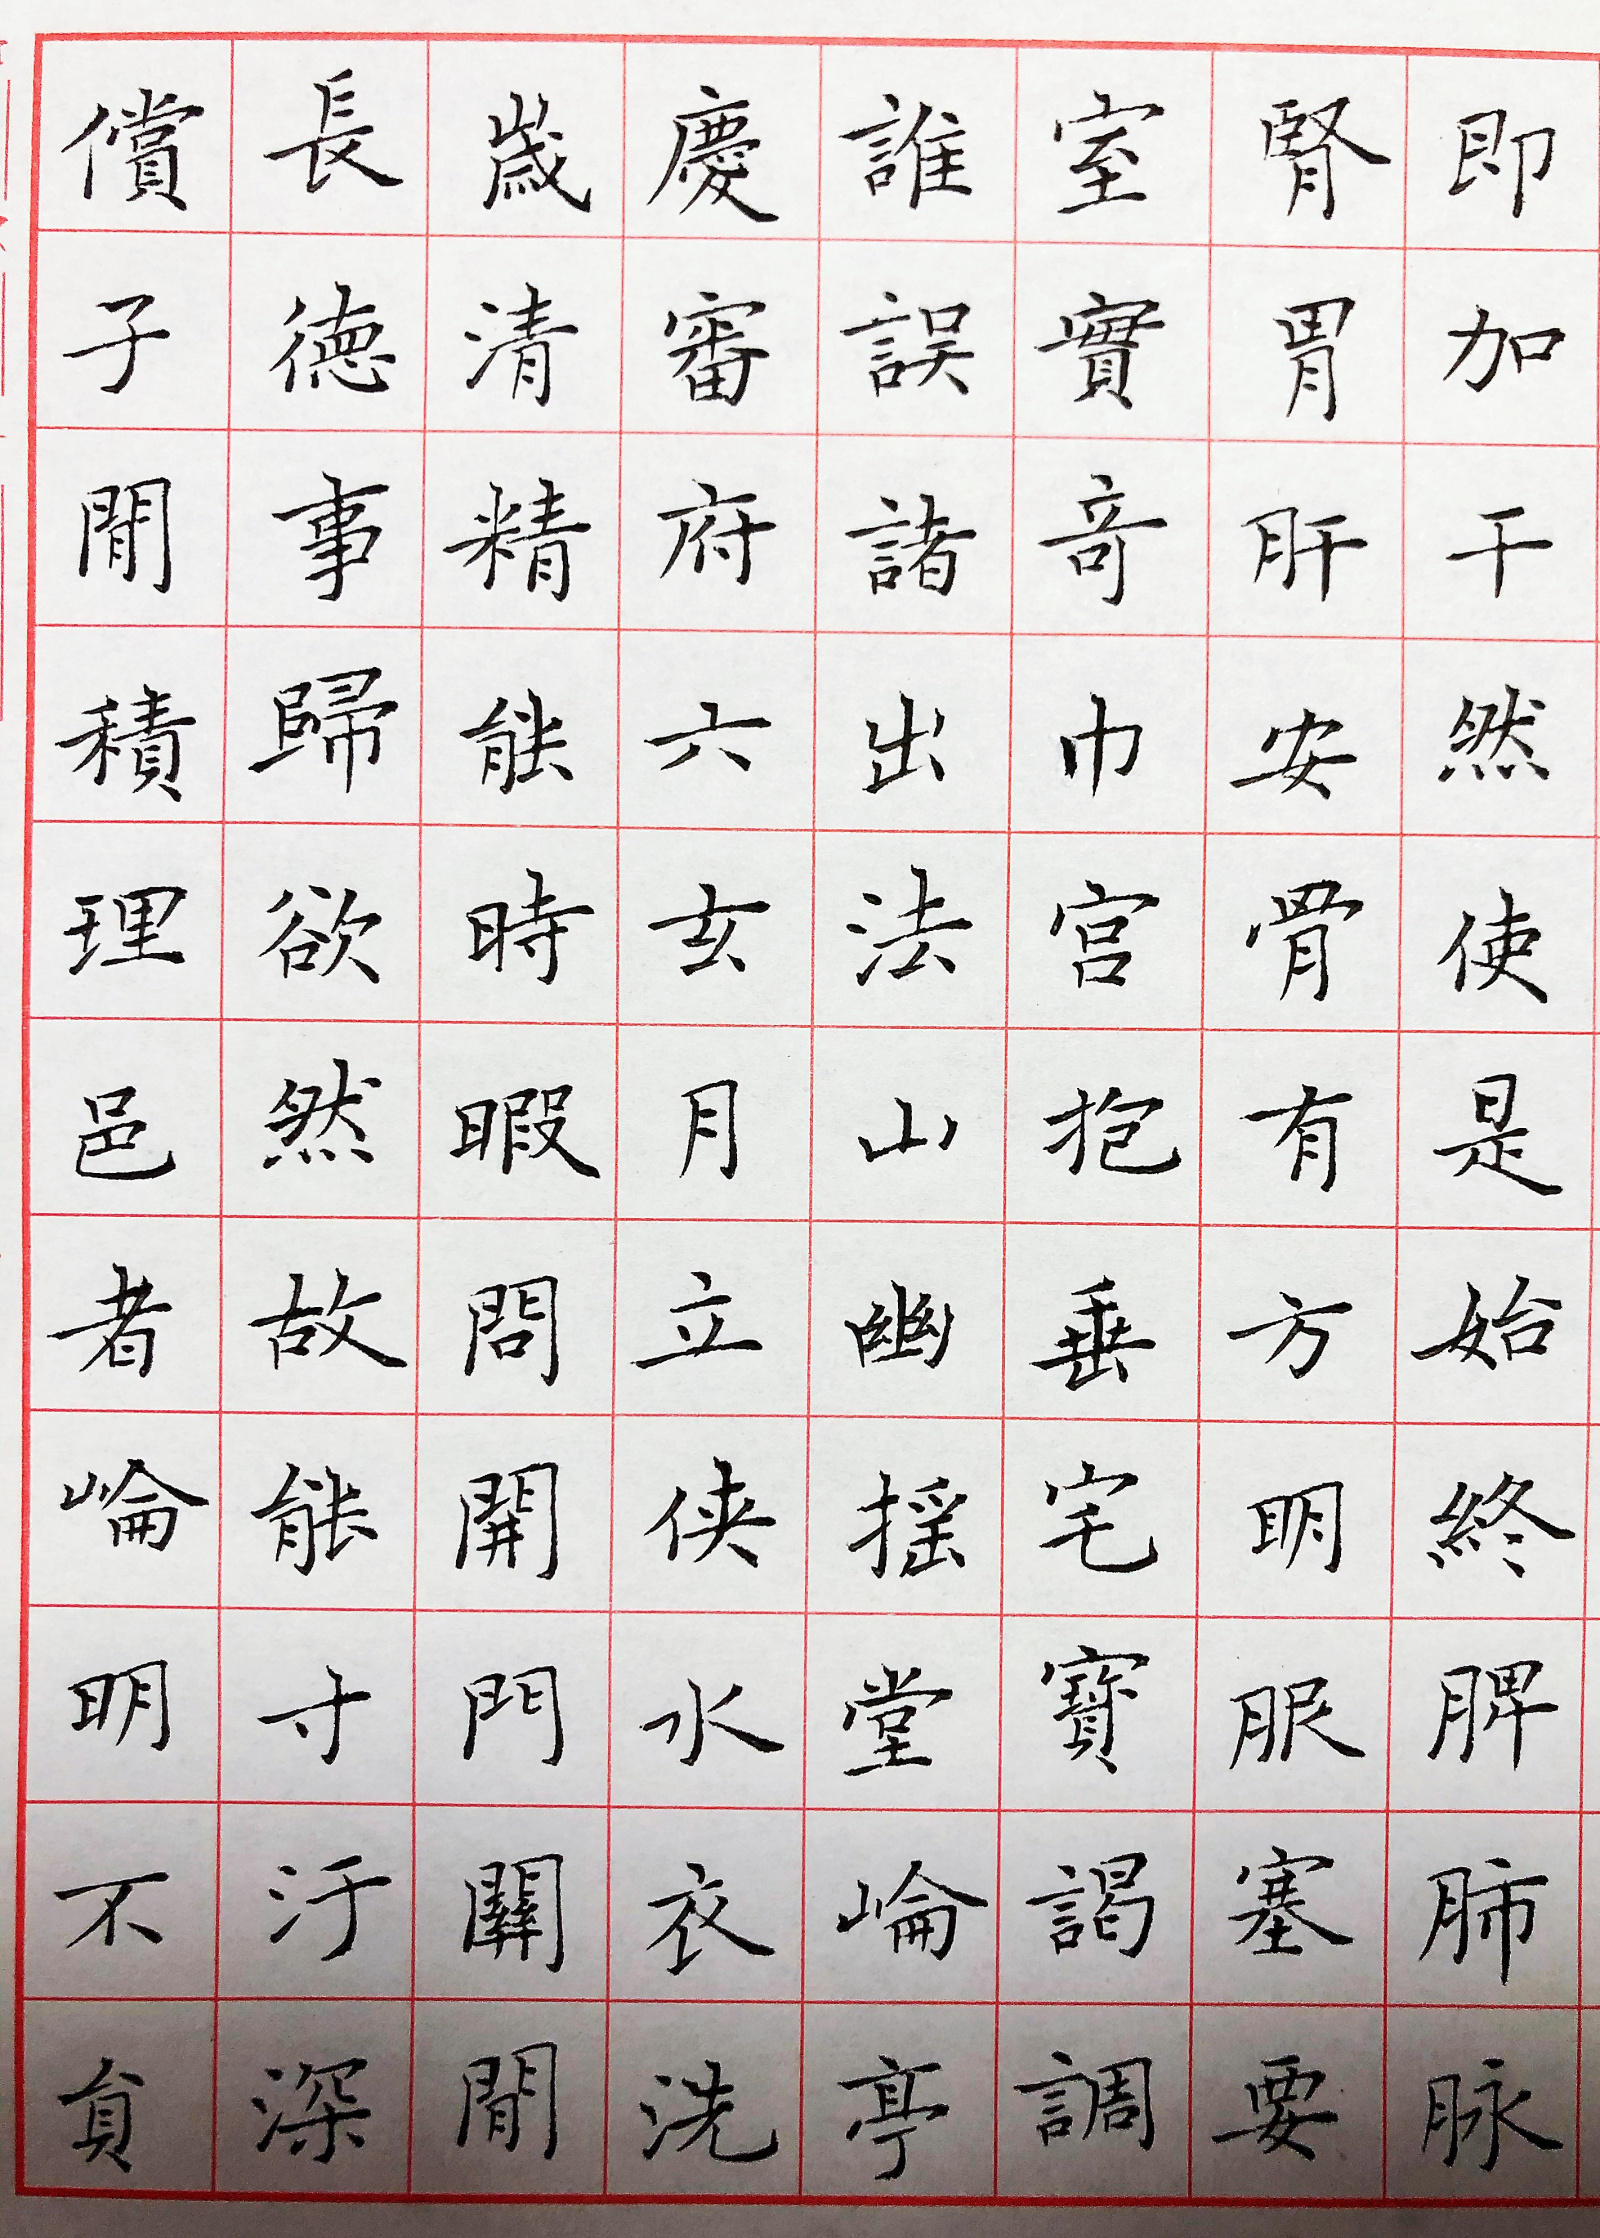 即加干然使是始終脾肺脉
腎胃肝安骨有方明眼塞要
室實奇巾宫抱垂宅寶謁調
誰誤諸出法山幽摇堂崘亭
慶審府六玄月立俠水衣洗
歲清精能時暇問開門關閒
長德事歸欲然故能寸汙深
償子閒積理邑者崘明不負